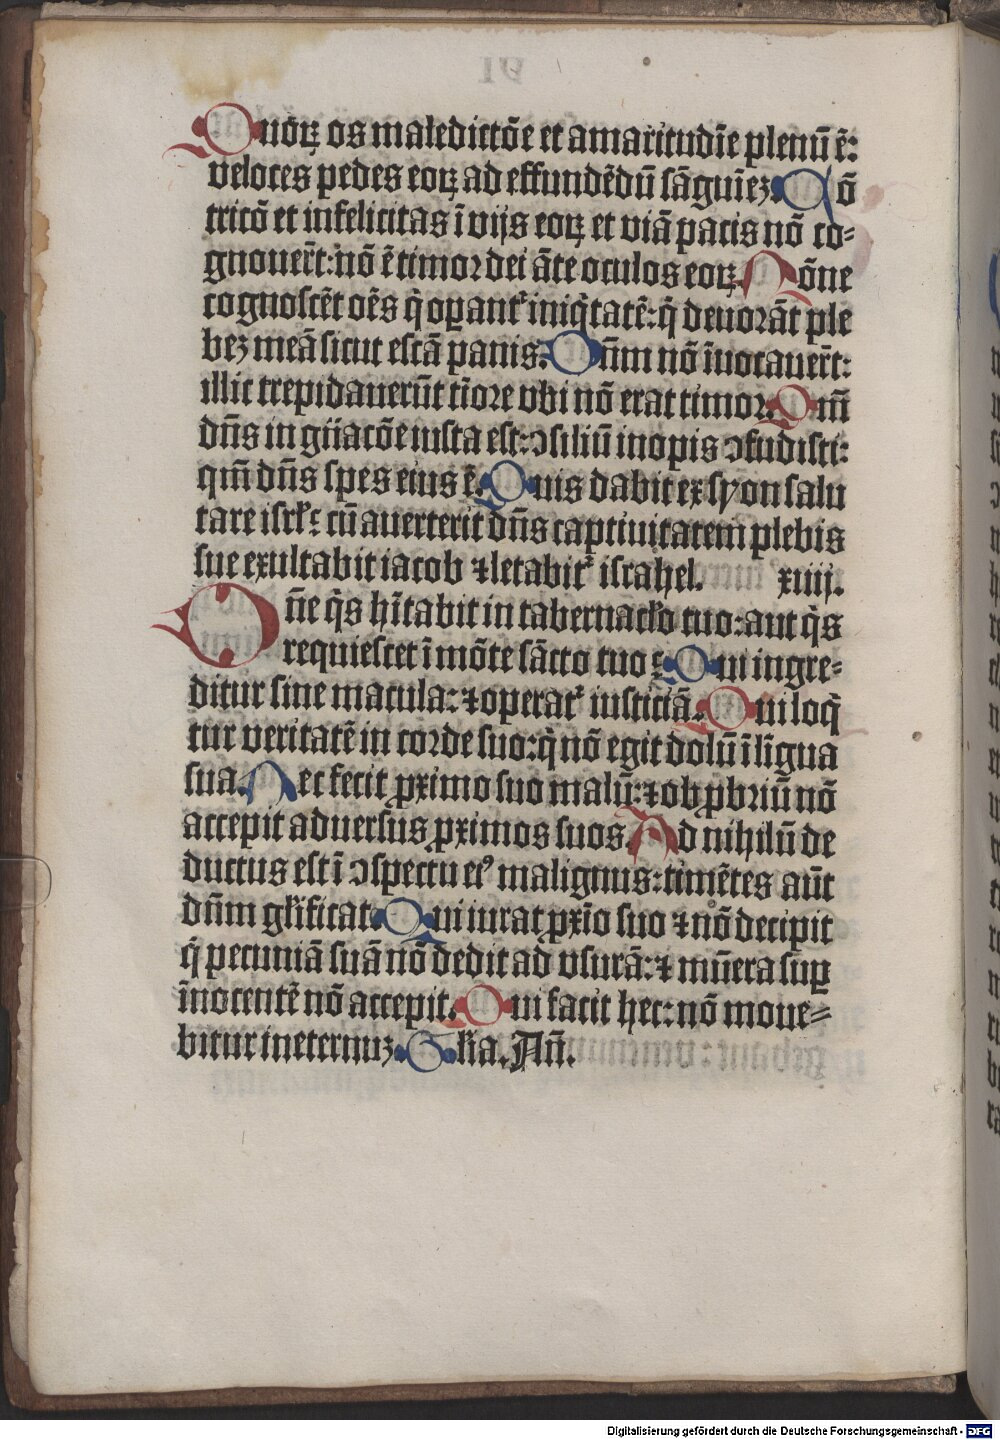 Quoꝝ os maledictōe et amaritudīe plenū ē:
veloces pedes eoꝝ ad effundēdū sāguīeꝫ. Cō
tricō et infelicitas ī vijs eoꝝ et viā pacis nō co⸗
gnouer̄t: nō ē timor dei āte oculos eoꝝ. Nōne
cognoscēt oēs q̇ oꝑant᷑ iniq̇tatē: q̇ deuorāt ple
beꝫ meā sicut escā panis. Dn̄m nō īuocauer̄t:
illic trepidauerūt tīore vbi nō erat timor. Qm̄
dn̄s in gn̄acōe iusta est: ↄsiliū inopis ↄfudisti:
qm̄ dn̄s spes eius ē. Quis dabit ex syon salu
tare isrl̄ꝭ cū auerterit dn̄s captiuitatem plebis
sue exultabit iacob ⁊ letabit᷑ israhel. xiiij.
Dn̄e q̇s hītabit in tabernacl̄o tuo: aut q̇s
requiescet ī mōte sācto tuoꝭ. Qui ingre⸗
ditur sine macula: ⁊ operat᷑ iusticiā. Qui loq̇
tur veritatē in corde suo: q̇ nō egit dolū ī līgua
sua. Nec fecit ꝓximo suo malū: ⁊ obꝓbriū nō
accepit aduersus ꝓximos suos. Ad nihilū de
ductus est ī ↄspectu eiꝰ malignus: timētes aūt
dn̄m gl̄ificat. Qui iurat ꝓxīo suo ⁊ nō decipit
q̇ pecuniā suā nō dedit ad vsurā: ⁊ mūera suꝑ
īnocentē nō accepit. Qui facit hec: nō moue⸗
bitur ineternuꝫ. Gl̄ia. An̄.
Digitalisierung gefördert durch die Deutsche Forschungsgemeinschaft - DFG